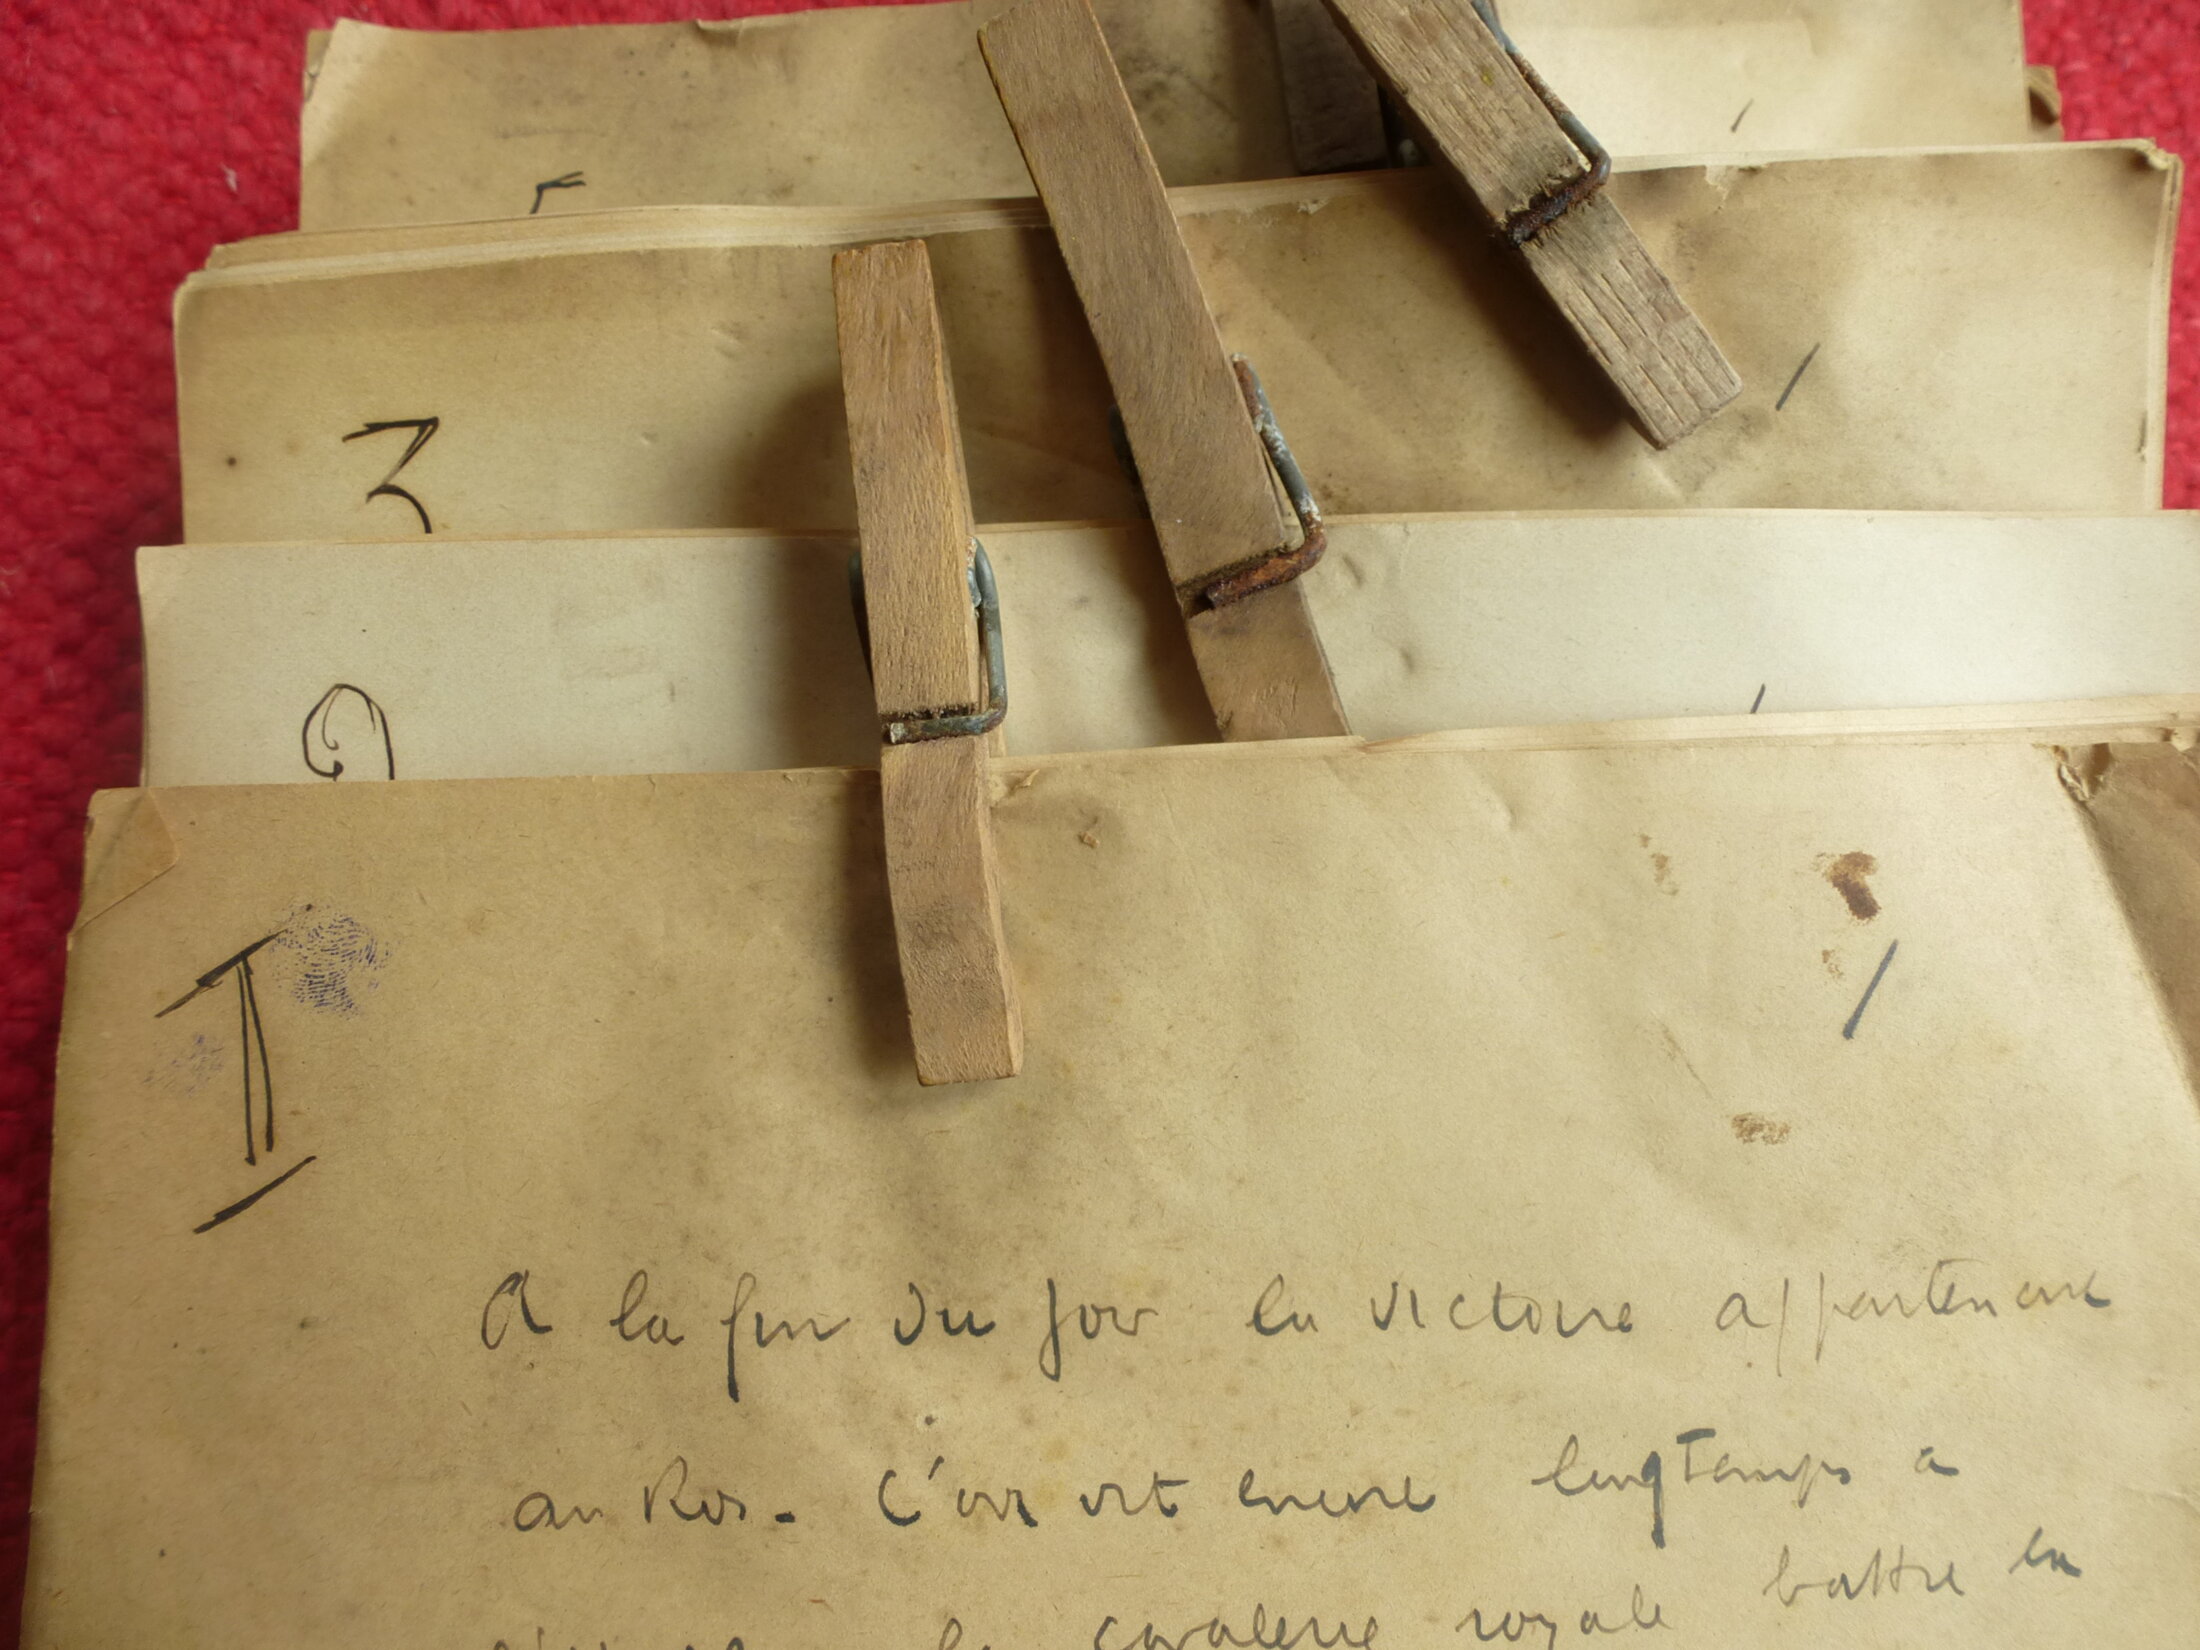 5
/
3
/
2
/
I
/
A la fin du jour la victoire appartenait
au Roi. L'on vit encore longtemps à
la cavalerie royale battre la